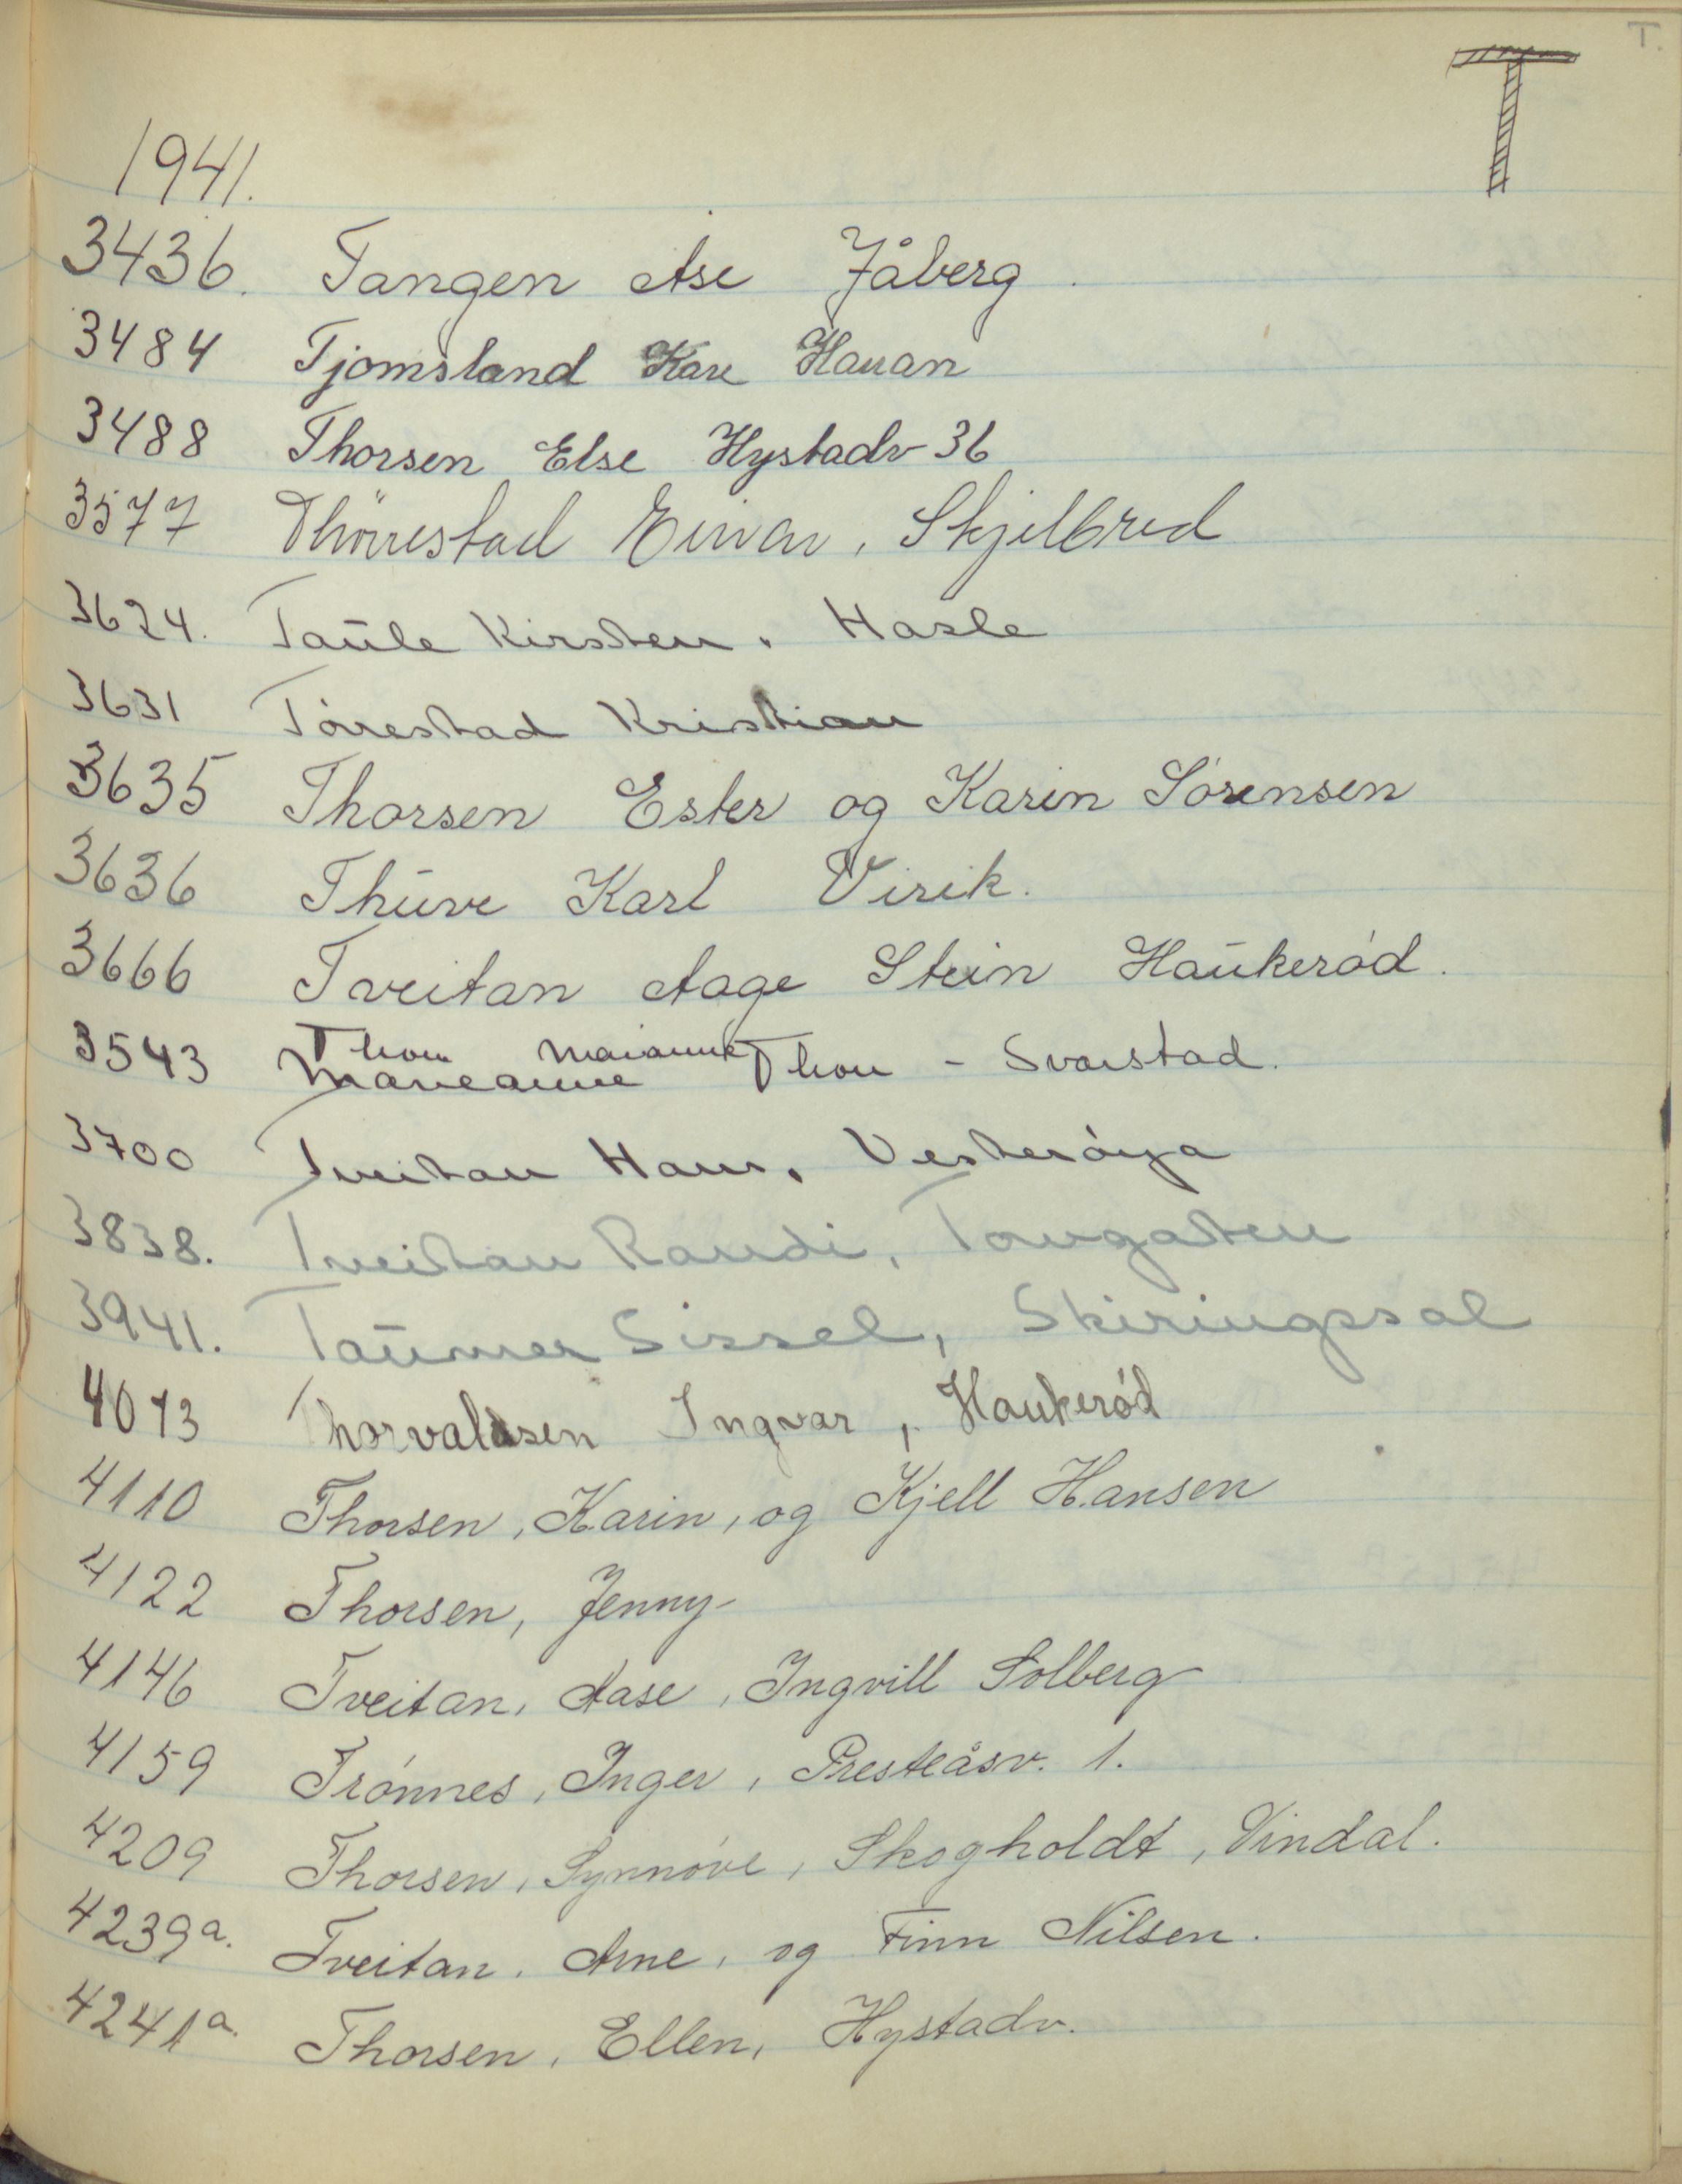 T.
T
1941.
3436. Tangen Åse Jåberg.
3484 Tjomsland Kare Hauan
3488 Thorsen Else Hystadv 36
3577 Thörrestad Einar, Skjelbred
3624. Taule Kirsten. Hasle
3631 Törrestad Kristian
3635 Thorsen Ester og Karin Sörensen
3636 Thuve Karl Virik.
3666 Tveitan Aage Stein Haukeröd.
Thon Marianne
3543 Marieanne Thon - Svarstad.
3700 Tveitan Hans. Vesteröya
3838. Tveitan Randi,
3941. Taumer Sissel, Skiringssal
4073 Thorvaldsen Ingvar, Haukeröd
4110 Thorsen, Karin, og Kjell Hansen
4122 Thorsen, Jenny
4146 Tveitan, Aase, Ingvill Solberg
4159 Trönnes, Inger, Presteåsv. 1.
4209 Thorsen, Synnöve, Skogholdt, Vindal.
4239a. Tveitan. Arne, og Finn Nilsen.
4241a. Thorsen, Ellen, Hystadv.